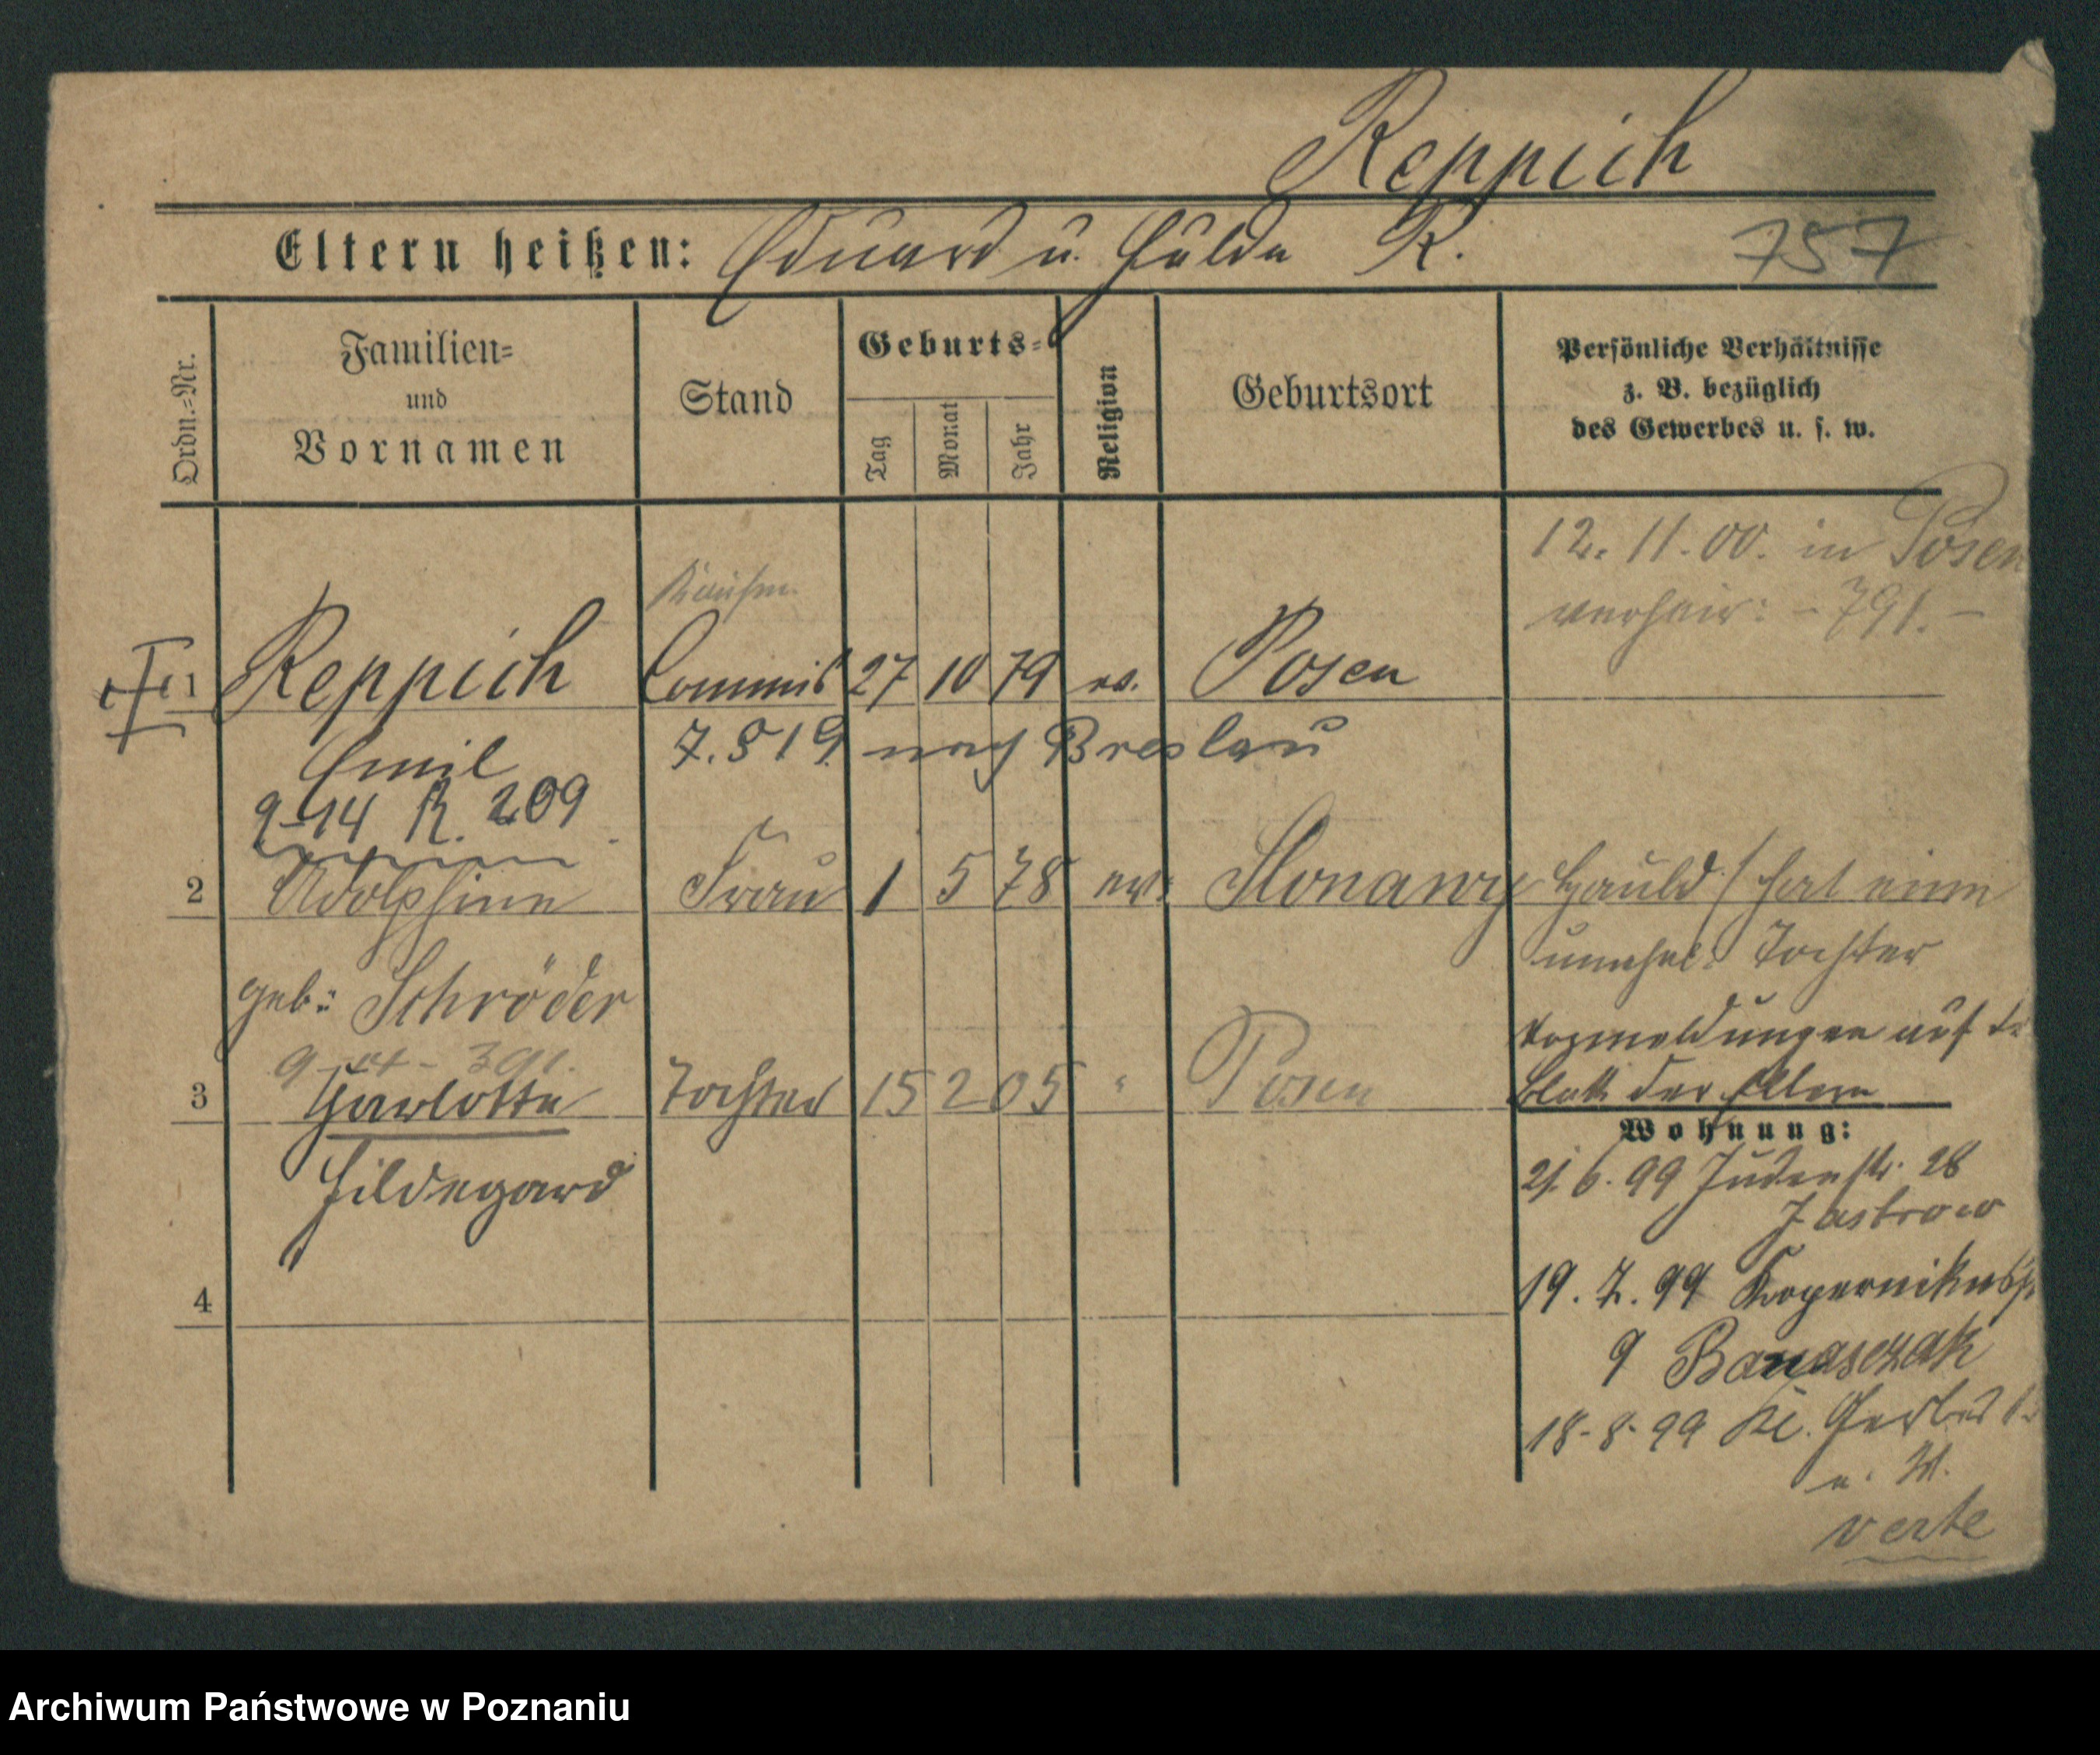 Reppich
Eltern heißen: Eduard u. Hulda R. 757
Ordn.-Nr.
Familien-
und
Vornamen
Stand
Geburts-
Tag
Monat
Jahr
Religion
Geburtsort
Persönliche Verhältnisse
z. B. bezüglich
des Gewerbes u. s. w.
12. 11. 00. in Posen
verheir: - 791. -
Kaufm.
1 Reppich Commis 27 10 79 ev. Posen
Emil 7. 8 19 nach Breslau
9-14 R. 209
2 Adolphine Frau 1 5 78 ev. Slonawy hat eine
unehel: Tochter
geb: Schröder
Vormeldungen auf
Blatt der Eltern
3 Charlotte Tochter 15 2 05 " Posen
Hildegard
Wohnung:
21. 6. 99 Judenstr. 28
Jastrow
4
19. 7. 99 Kopernikusstr.
9 Banaszak
18. 8. 99 Kl. Gerberstr.
verte
Archiwum Państwowe w Poznaniu